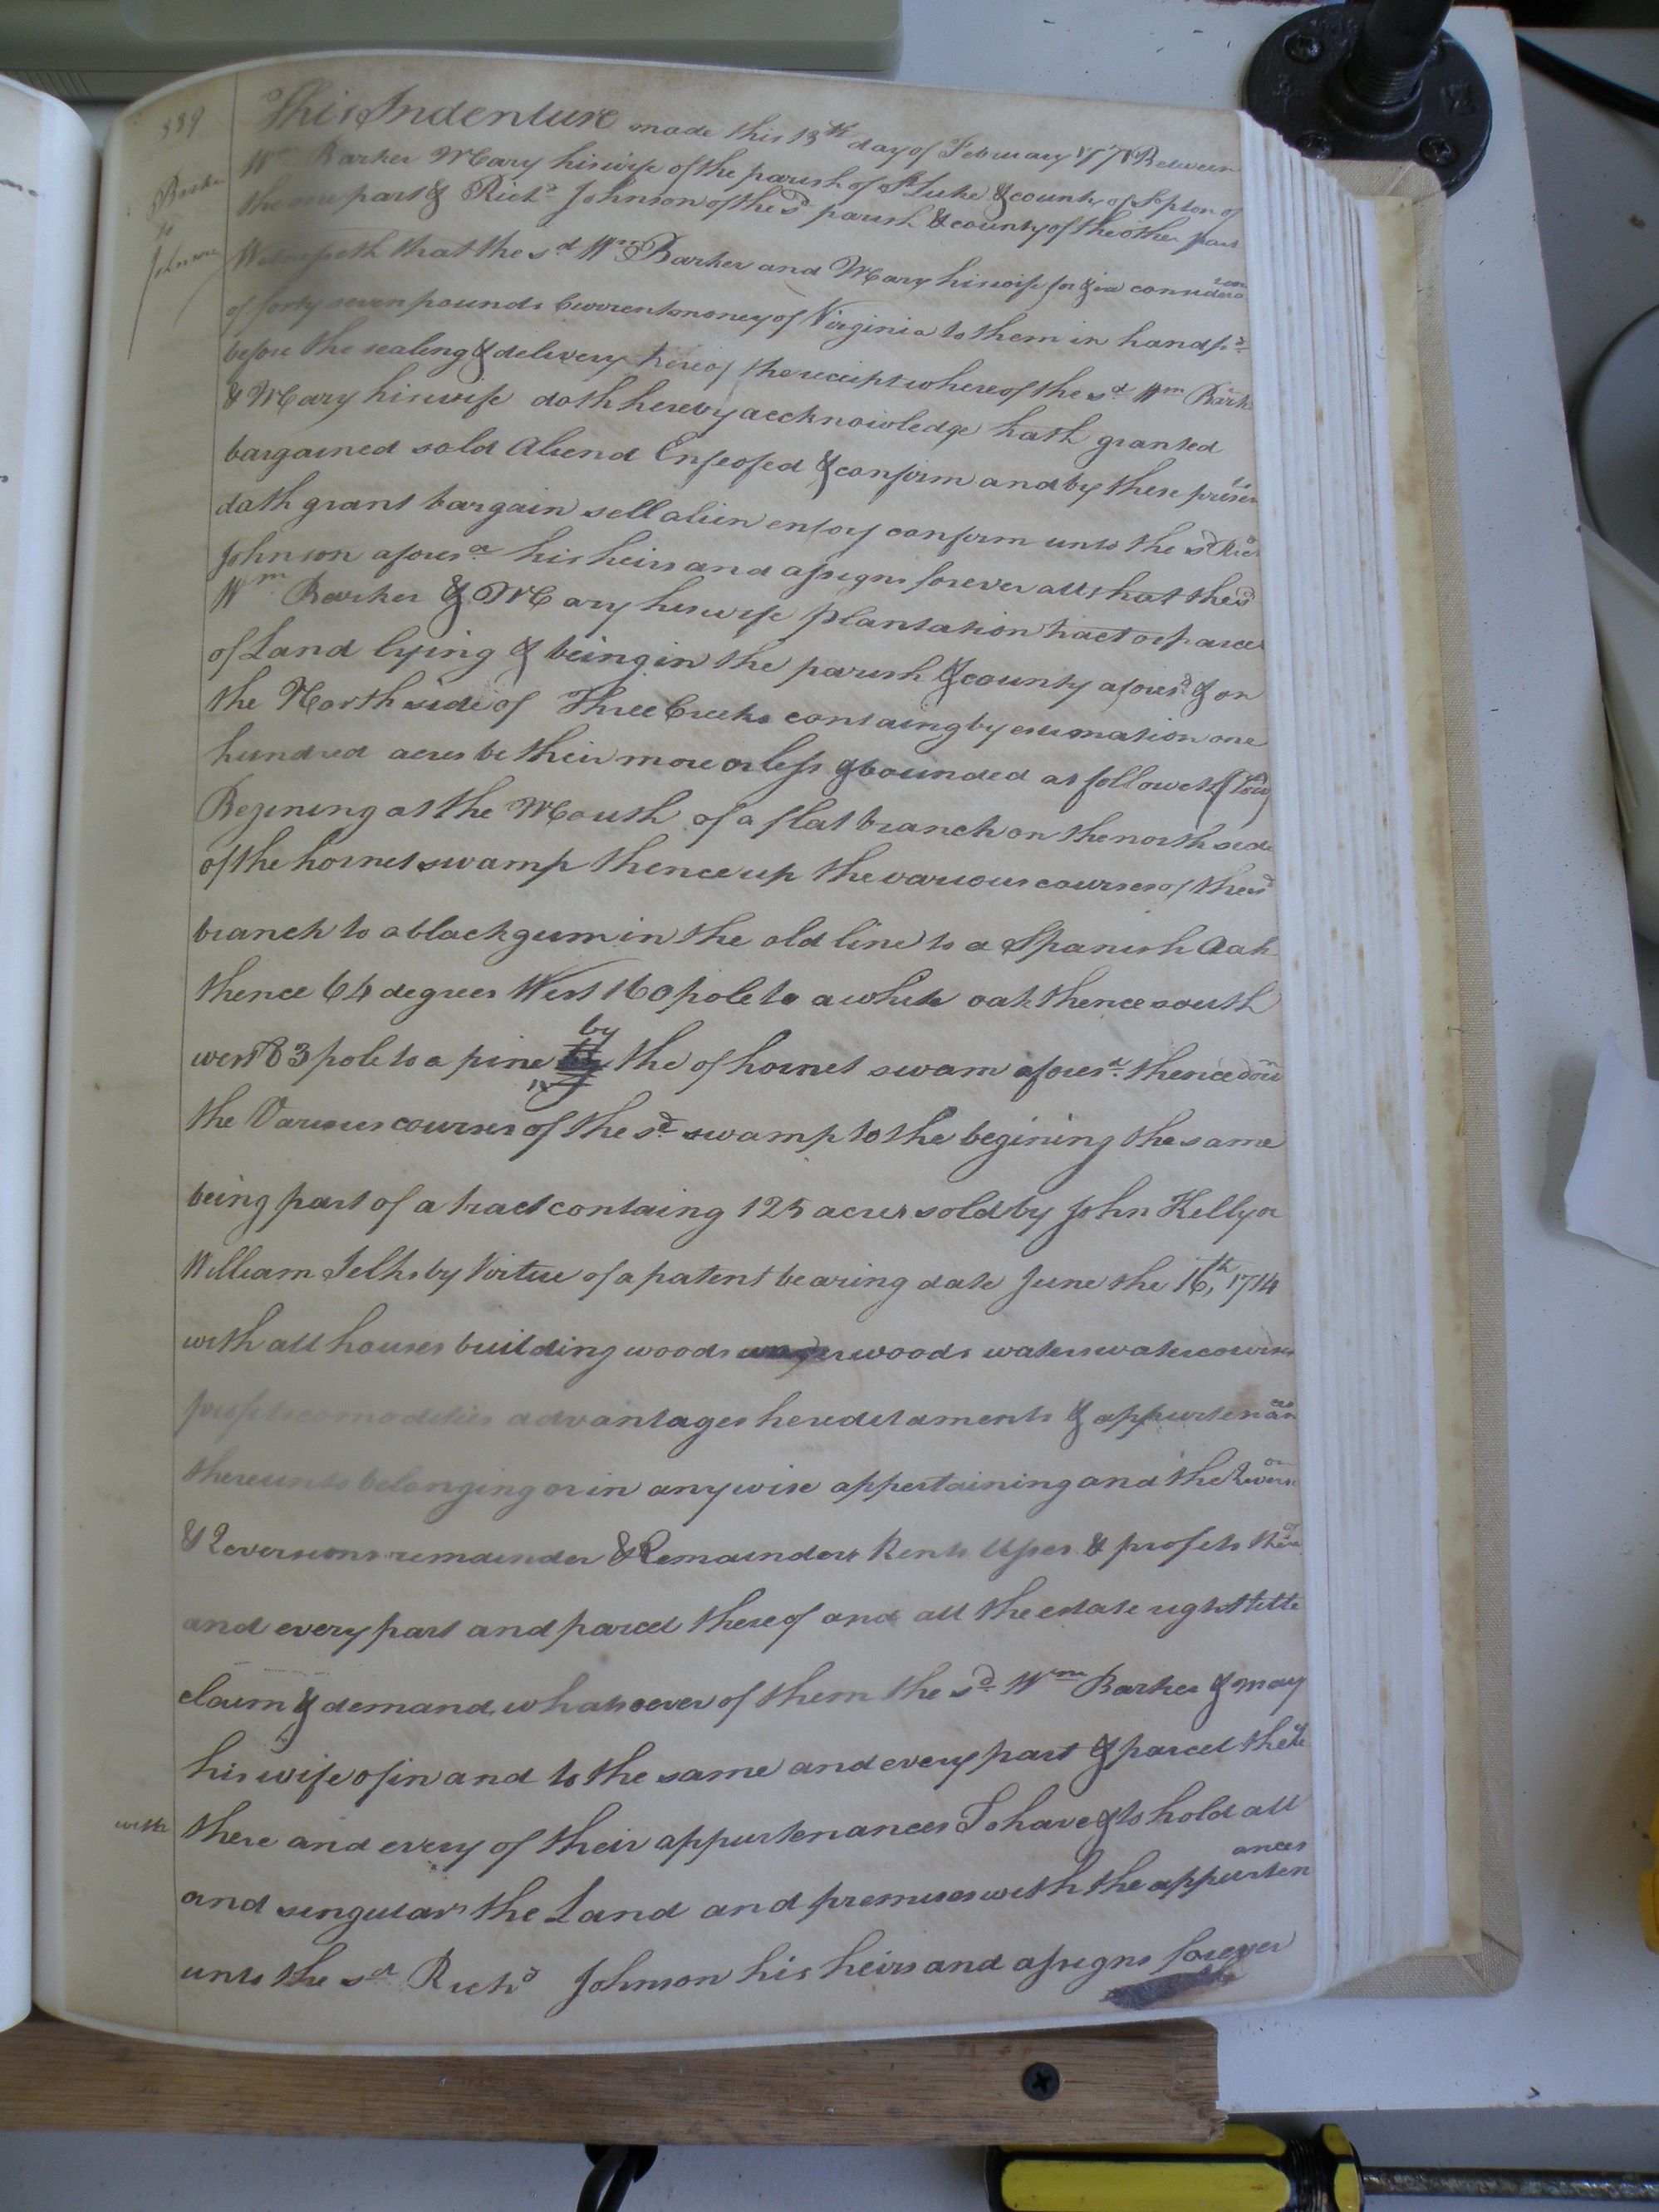 339
Barker
to
Johnson
This Indenture made this 13th day of February Between
Wm Barker Mary his wife of the parish of St Luke & county of Sopton of
the one part & Richd Johnson of the sd parish & county of the other part
Witnesseth that the sd Wm Barker and Mary his wife for & in consideration
of forty seven pounds Current money of Virginia to them in hand pd
before the sealing & delivery hereof the receipt whereof the sd Wm Bark
& Mary his wife doth hereby accknowledge hath granted
bargained sold aliend Enfeofed & confirm and by these presents
doth grant bargain sell alien enfoy confirm unto the sd Richd
Johnson aforesd his heirs and assigns forever all that the sd
Wm Barker & Mary his wife plantation tract or parcel
of Land lying & being in the parish & county aforesd & on
the North side of Three Creeks containg by estimation one
hundred acres be their more or less & bounded as followeth
Begining at the Mouth of a flat branch on the north side
of the hornet swamp thence up the various courses of the sd
branch to a black gum in the old line to a Spanish Oak
thence 64 degrees West 160 pole to a white oak thence south
west 83 pole to a pine by the of hornet swam aforesd thence down
the Various courses of the sd swamp to the begining the same
being part of a tract containg 125 acres sold by John Kelly
William by Virtue of a patent bearing date June the 16th, 1714
with all houses building woods underwoods waters watercourses
profits comodities advantages heredetaments & appurtenances
thereunto belonging or in anywise appertaining and the Reversion
& Reversions remainder & Remainders Rents Uses & profits thereof
and every part and parcel thereof and all the estate right title
claim & demand whatsoever of them the sd Wm Barker & mary
his wife of in and to the same and every part & parcel thereof
with there and every of their appurtenances To have & to hold all
and singular the Land and premises with the appurtenances
unto the sd Richd Johnson his heirs and assigns forever